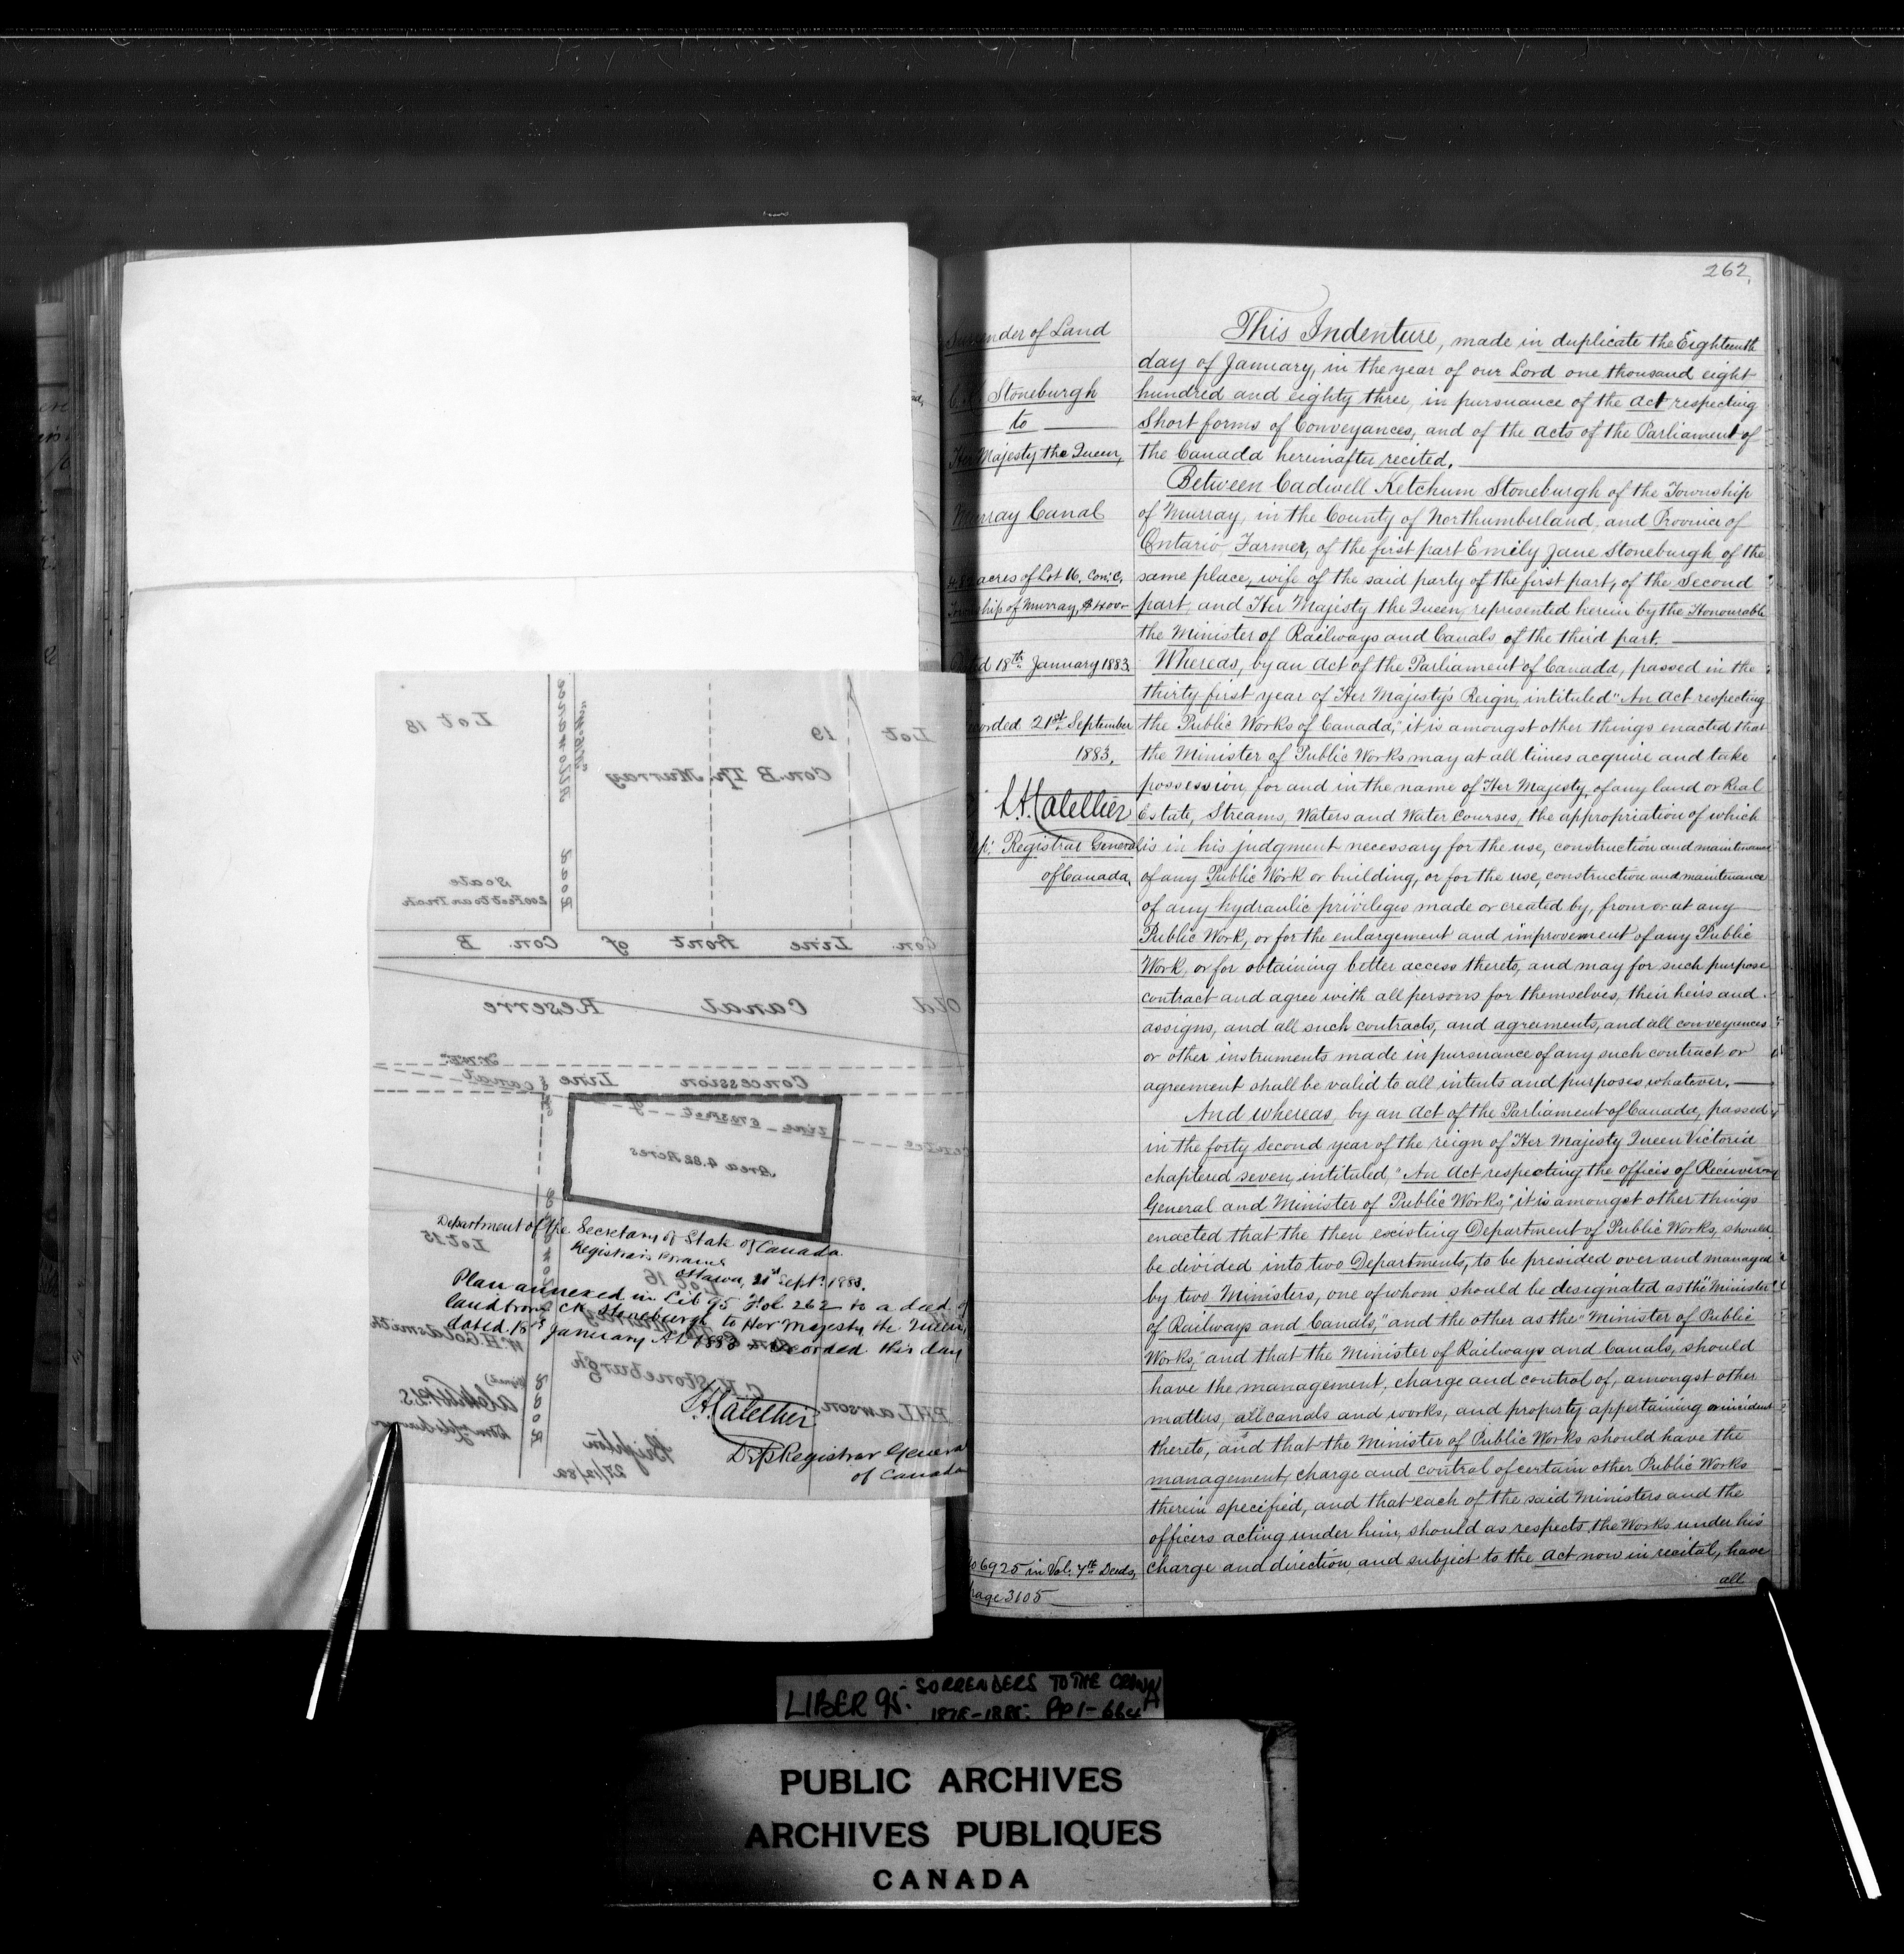 262
Surrender of Land
Stoneburgh
to
Her Majesty the Queen,
Murray Canal
4.82 acres of Lot 16, Con: C,
Township of Murray, $400
18th January 1883
21st September
1883,
L.A. Catellier
Dep: Registrar General
of Canada,
6925 in Vol. 7th Deeds,
page 3105
This Indenture, made in duplicate the Eighteenth
day of January, in the year of our Lord one thousand eight
hundred and eighty three, in pursuance of the Act respecting
Short forms of Conveyances, and of the acts of the Parliament of
the Canada hereinafter recited.
Between Cadwell Ketchum Stoneburgh of the Township
of Murray, in the County of Northumberland, and Province of
Ontario, Farmer, of the first part Emily Jane Stoneburgh of the
same place, wife of the said party of the first part, of the Second
part, and Her Majesty the Queen, represented herein by the Honourable
the Minister of Railways and Canals of the third part.
Whereas, by an Act of the Parliament of Canada, passed in the
thirty first year of Her Majesty's Reign, intituled "An Act respecting
the Public Works of Canada," it is amongst other things enacted that
the Minister of Public Works may at all times acquire and take
possession, for and in the name of Her Majesty, of any land or Real
Estate, Streams, Waters and Water Courses, the appropriation of which
is in his judgment necessary for the use, construction and maintenance
of any Public Work or building, or for the use, construction and maintenance
of any hydraulic privileges made or created by, from or at any
Public Work, or for the enlargement and improvement of any Public
Work, or for obtaining better access thereto, and may for such purpose
contract and agree with all persons for themselves, their heirs and
assigns, and all such contracts, and agreements, and all conveyances
or other instruments made in pursuance of any such contract or
agreement shall be valid to all intents and purposes whatever.
And whereas, by an Act of the Parliament of Canada, passed
in the forty second year of the reign of Her Majesty Queen Victoria
chaptered seven, intituled, "An Act respecting the offices of Receiver
General and Minister of Public Works," it is amongst other things
enacted that the then existing Department of Public Works, should
be divided into two Departments, to be presided over and managed
by two Ministers, one of whom should be designated as the "Minister
of Railways and Canals," and the other as the "Minister of Public
Works," and that the Minister of Railways and Canals, should
have the management, charge and control of, amongst other
matters, all canals and works, and property appertaining or incident
thereto, and that the Minister of Public Works should have the
management, charge and control of certain other Public Works
therein specified, and that each of the said Ministers and the
officers acting under him, should as respects the Works under his
charge and direction, and subject to the Act now in recital, have
all
Lot 18
19
Lot
Con. B Tp. Murray
Road
Scale
200 Feet to an Inch
Con. Line front of Con. B
Old Canal Reserve
Concession Line
centre line of canal
Area 4.82 Acres
Lot 15
Lot 16
W.H. Goldsmith
C.K. Stoneburgh
P.H. Lawson
Brighton
Department of the Secretary of State of Canada
Registrar's Branch
Ottawa, 21st Sept. 1883.
Plan annexed in Lib 95 Fol. 262 to a deed of
land from C K Stoneburgh to Her Majesty the Queen,
dated 18th January A.D 1883 Recorded this day
L.A. Catellier
Dep Registrar General
of Canada
LIBER 95: SURRENDERS TO THE CROWN
PP 1-664
PUBLIC ARCHIVES
ARCHIVES PUBLIQUES
CANADA